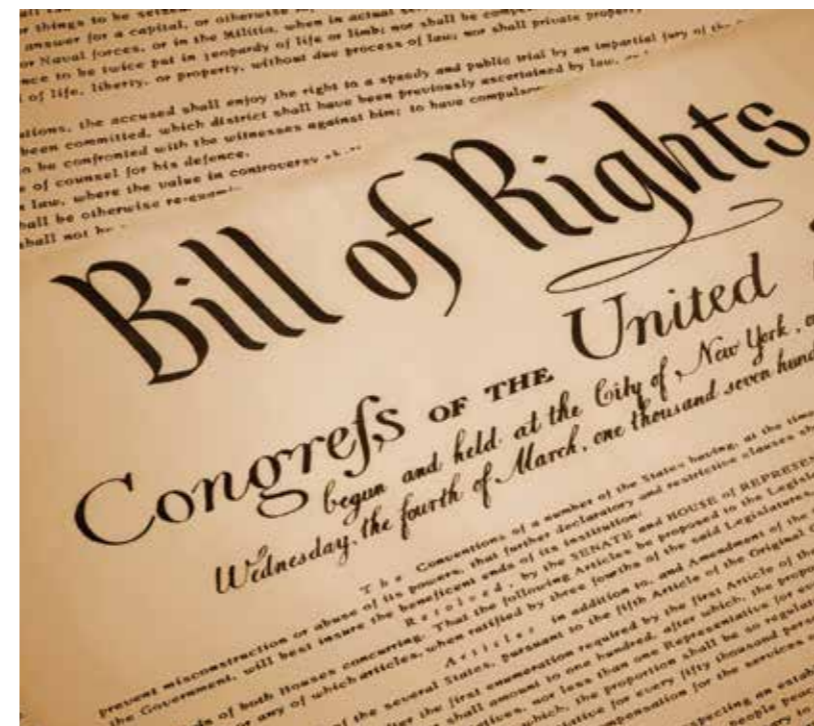 or things to be seized.
answer for a capital, or otherwise
or Naval forces, or in the Militia, when in actual
to be twice put in jeopardy of life or limb; nor shall be
of life, liberty, or property, without due process of law; nor shall private property
the accused shall enjoy the right to a speedy and public trial by an impartial jury of the
been committed, which district shall have been previously ascertained by law,
be confronted with the witnesses against him; to have
of counsel for his defence.
law, where the value in controversy
shall be otherwise
shall not be
Bill of Rights
Congreſs OF THE United
begun and held at the City of New York,
Wednesday, the fourth of March, one thousand seven
The Conventions of a number of the States having, at the time
prevent misconstruction or abuse of its powers, that further declaratory and restrictive clauses
the Government, will best insure the beneficent ends of its institution:
Resolved, by the SENATE and HOUSE of
of both Houses concurring, That the following Articles be proposed to the
or any of which articles, when ratified by three fourths of the said Legislatures,
Articles in addition to, and Amendment of the
of the several States, pursuant to the fifth Article of the Original
the first enumeration required by the first Article of the
shall amount to one hundred, after which, the
nor less than one Representative for
which, the proportion shall be so
for every fifty thousand
for the services
an